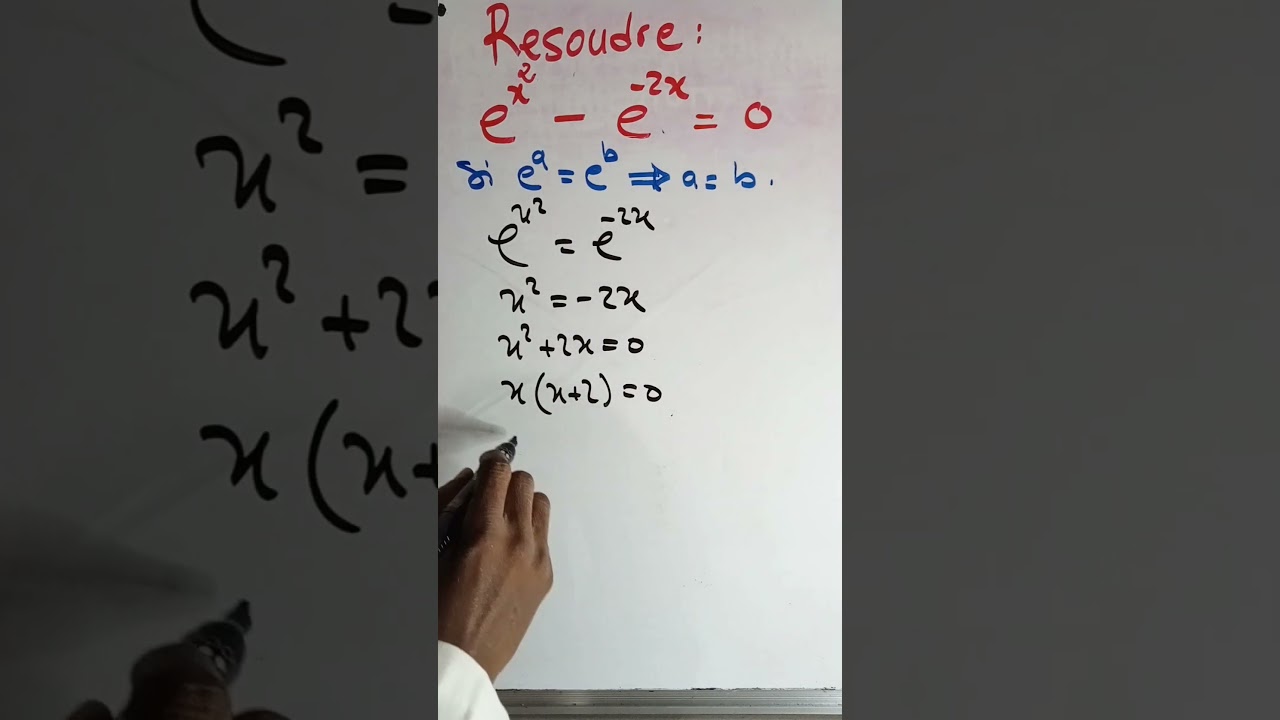 Resoudre :
e^{x^2} - e^{-2x} = 0
Si e^a = e^b ⇒ a = b.
e^{x^2} = e^{-2x}
x^2 = -2x
x^2 + 2x = 0
x(x+2) = 0